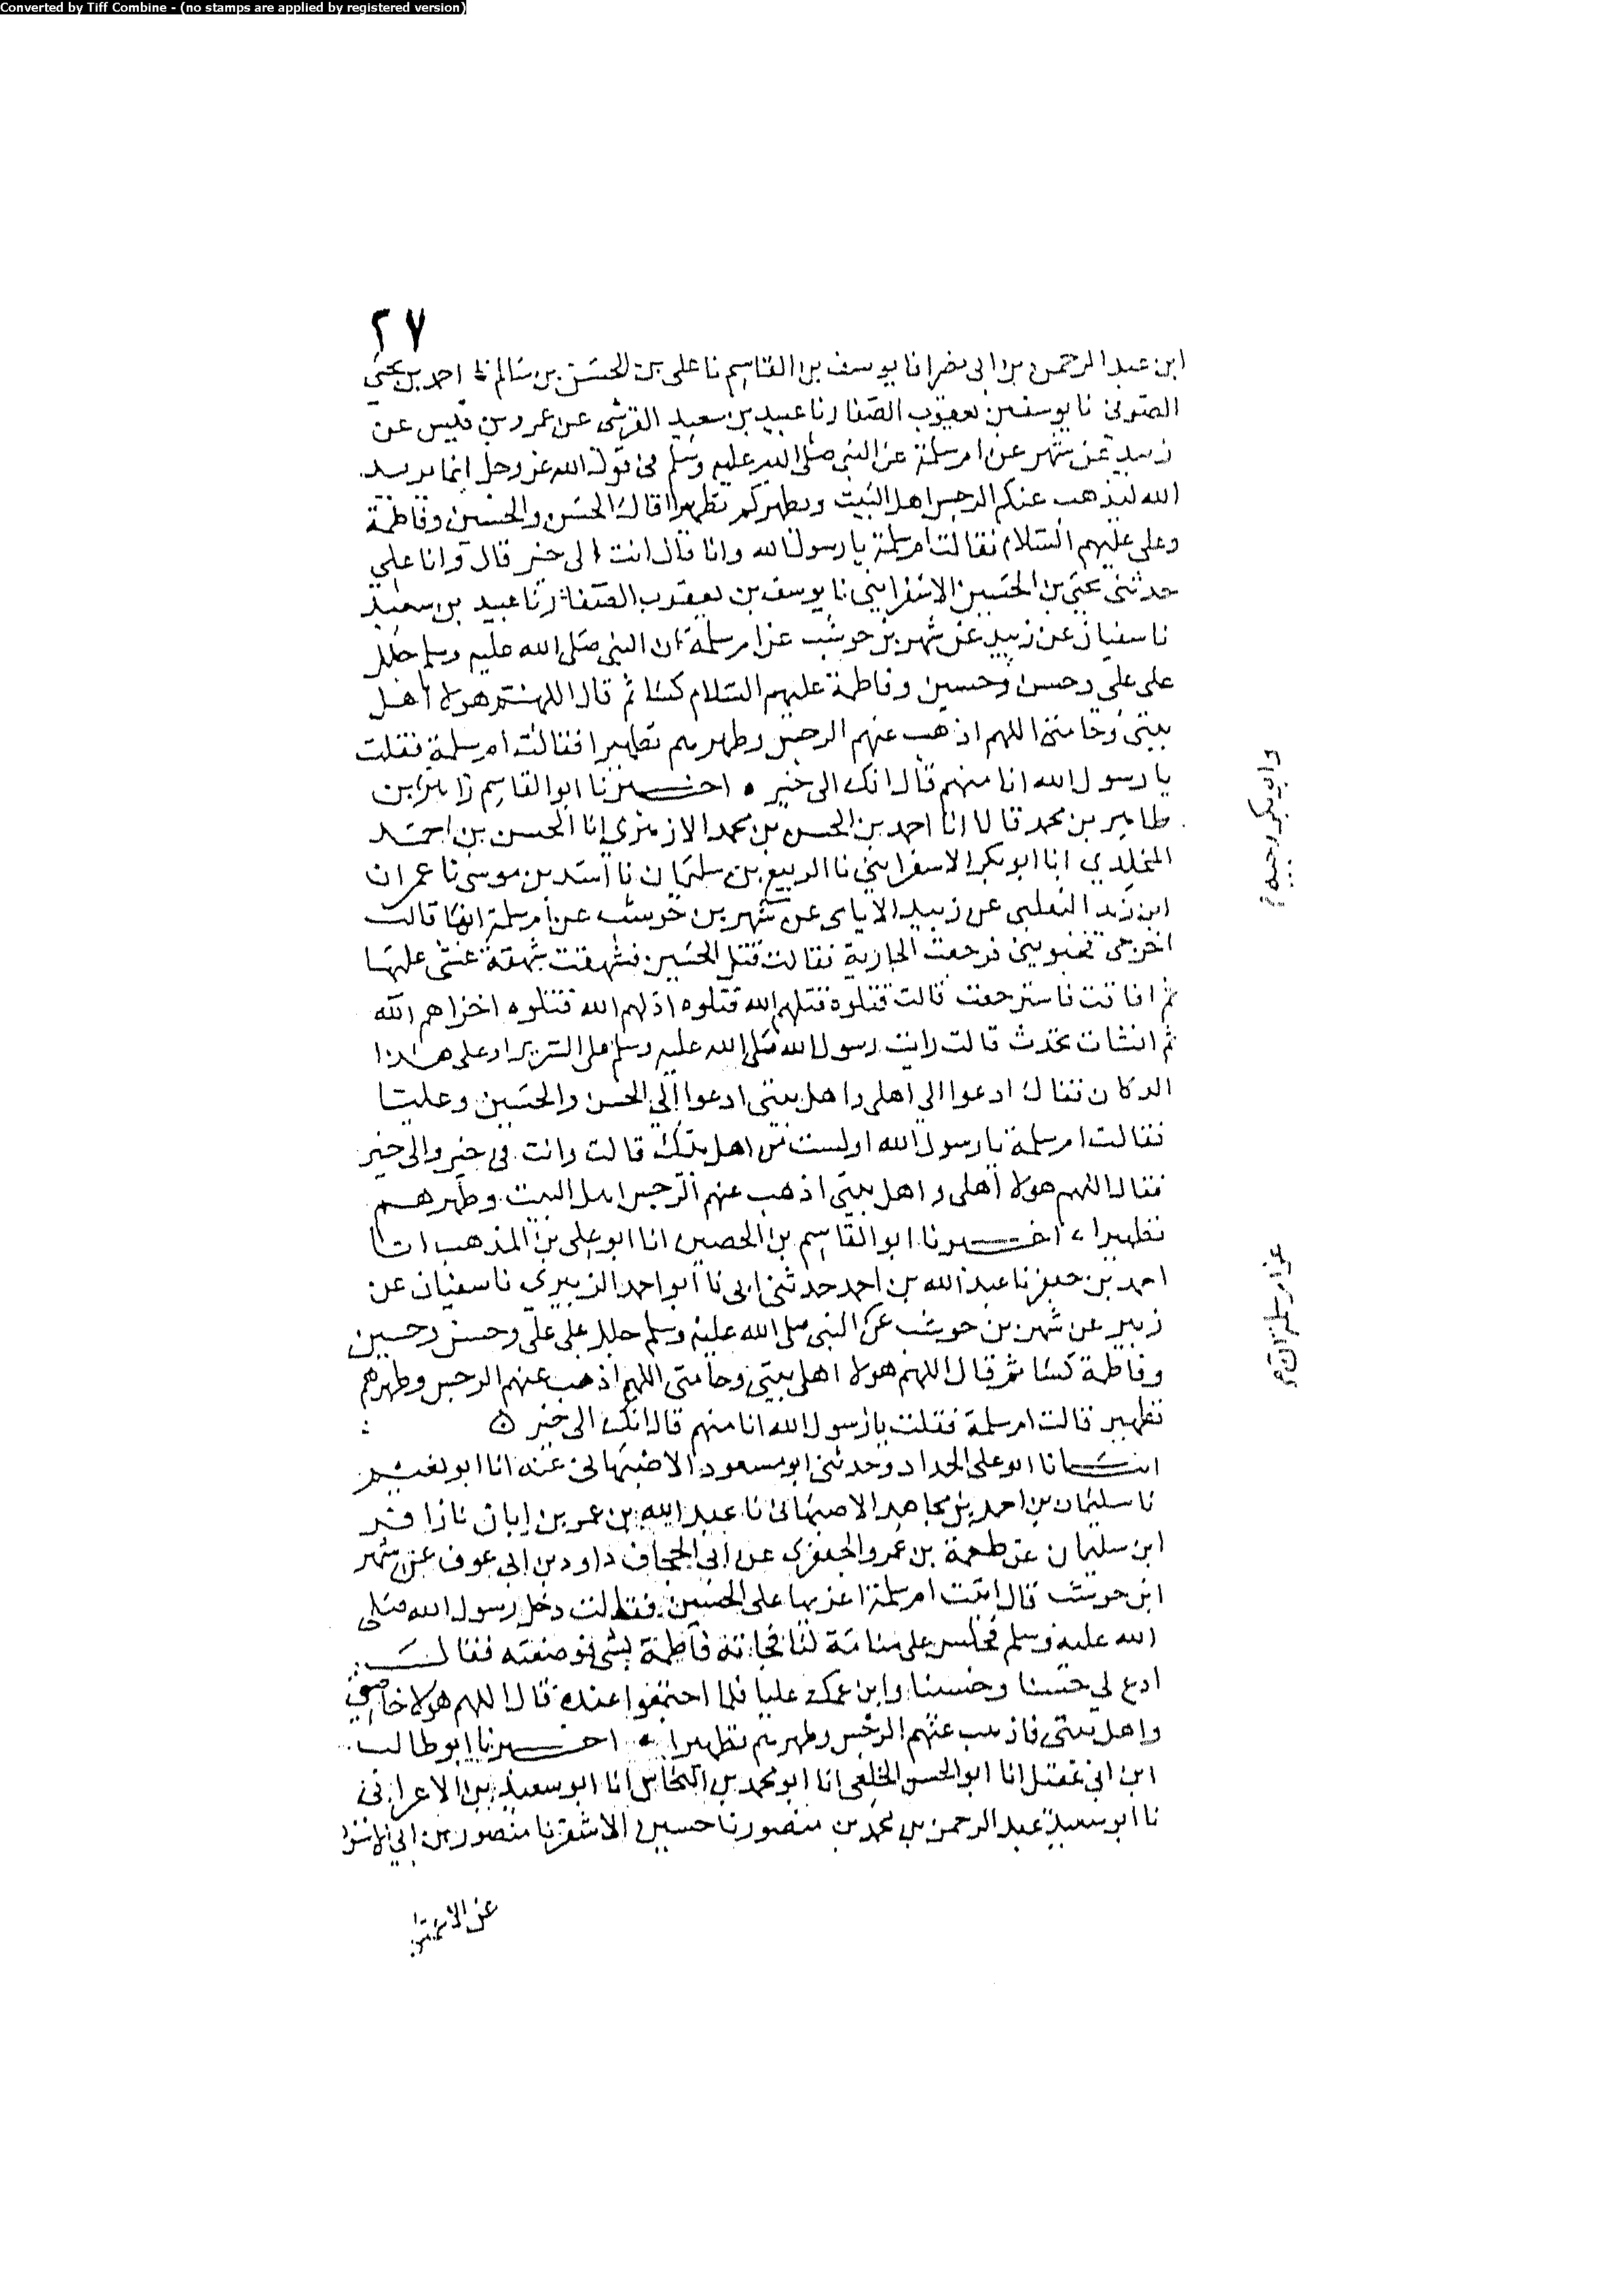 Converted by Tiff Combine - (no stamps are applied by registered version)
٢٧
ابن عبد الرحمن بن ابى نصر انا يوسف بن القاسم نا على بن الحسن بن سالم نا احمد بن يحيى
الصوفى نا يوسف بن يعقوب الصفار نا عبيد بن سعيد القرشى عن عمرو بن قيس عن
زبيد عن شهر عن ام سلمة عن النبى صلى الله عليه وسلم فى قول الله عز وجل انما يريد
الله ليذهب عنكم الرجس اهل البيت ويطهركم تطهيرا قال الحسن والحسين وفاطمة
وعلى عليهم السلام فقالت ام سلمة يا رسول الله وانا قال انت الى خير قال وانا على
حدثنى يحيى بن الحسين الاسفراينى نا يوسف بن يعقوب الصفار نا عبيد بن سعيد
نا سفيان عن زبيد عن شهر بن حوشب عن ام سلمة ان النبى صلى الله عليه وسلم جلل
على على وحسن وحسين وفاطمة عليهم السلام كسا ثم قال اللهم هولا اهل
بيتى وحامتى اللهم اذهب عنهم الرجس وطهرهم تطهيرا فقالت ام سلمة فقلت
يا رسول الله انا منهم قال انك الى خير ه اخبرنا ابو القاسم زاهر بن
طاهر بن محمد قالا انا احمد بن الحسن بن محمد الازهرى انا الحسن بن احمد
المخلدي انا ابو بكر الاسفراينى نا الربيع بن سليمان نا اسد بن موسى نا عمران
ابن زيد التغلبى عن زبيد الايامى عن شهر بن حوشب عن ام سلمة انها قالت
اخرجى فرجعت الجارية فقالت قتل الحسين فشهقت شهقة غشى عليها
ثم افاقت فاسترجعت قالت قتلوه قتلهم الله قتلوه اذلهم الله قتلوه اخزاهم الله
ثم انشات تحدث قالت رايت رسول الله صلى الله عليه وسلم على السرير او على هذا
الدكان فقال ادعوا الي اهلى واهل بيتى ادعوا الي الحسن والحسين وعليا
فقالت ام سلمة يا رسول الله اولست من اهل بيتك قالت وانت فى خير والى خير
فقال اللهم هولا اهلى واهل بيتى اذهب عنهم الرجس اهل البيت وطهرهم
تطهيرا ، اخبرنا ابو القاسم بن الحصين انا ابو على بن المذهب انا
احمد بن جعفر نا عبد الله بن احمد حدثنى ابى نا ابو احمد الزبيري نا سفيان عن
زبيد عن شهر بن حوشب عن النبى صلى الله عليه وسلم جلل على على وحسن وحسين
وفاطمة كسا ثم قال اللهم هولا اهل بيتى وحامتى اللهم اذهب عنهم الرجس وطهرهم
تطهير قالت ام سلمة فقلت يا رسول الله انا منهم قال انك الى خير ه
انبانا ابو على الحداد وحدثنى ابو مسعود الاصبهانى عنه انا ابو نعيم
نا سليمان بن احمد بن مجاهد الاصبهانى نا عبد الله بن عمر بن ابان نا زافر
ابن سليمان عن طعمة بن عمرو الجعفرى عن ابى الجحاف داود بن ابى عوف عن شهر
ابن حوشب قال اتيت ام سلمة اعزيها على الحسين فقالت دخل رسول الله صلى
الله عليه وسلم فجلس على منامة لنا فجاته فاطمة بشى فوضعته فقالت
ادع لي حسنا وحسينا وابن عمك عليا فلما اجتمعوا عنده قال اللهم هولا خاصتى
واهل بيتى فاذهب عنهم الرجس وطهرهم تطهيرا ه اخبرنا ابو طالب
ابن ابى عقيل انا ابو الحسن الخلعى انا ابو محمد بن النحاس انا ابو سعيد بن الاعرابى
نا ابو سعيد عبد الرحمن بن محمد بن منصور نا حسين الاشقر نا منصور بن ابى الاسود
عن الاعمش
وابو بكر وجيه
عن ام سلمة ان